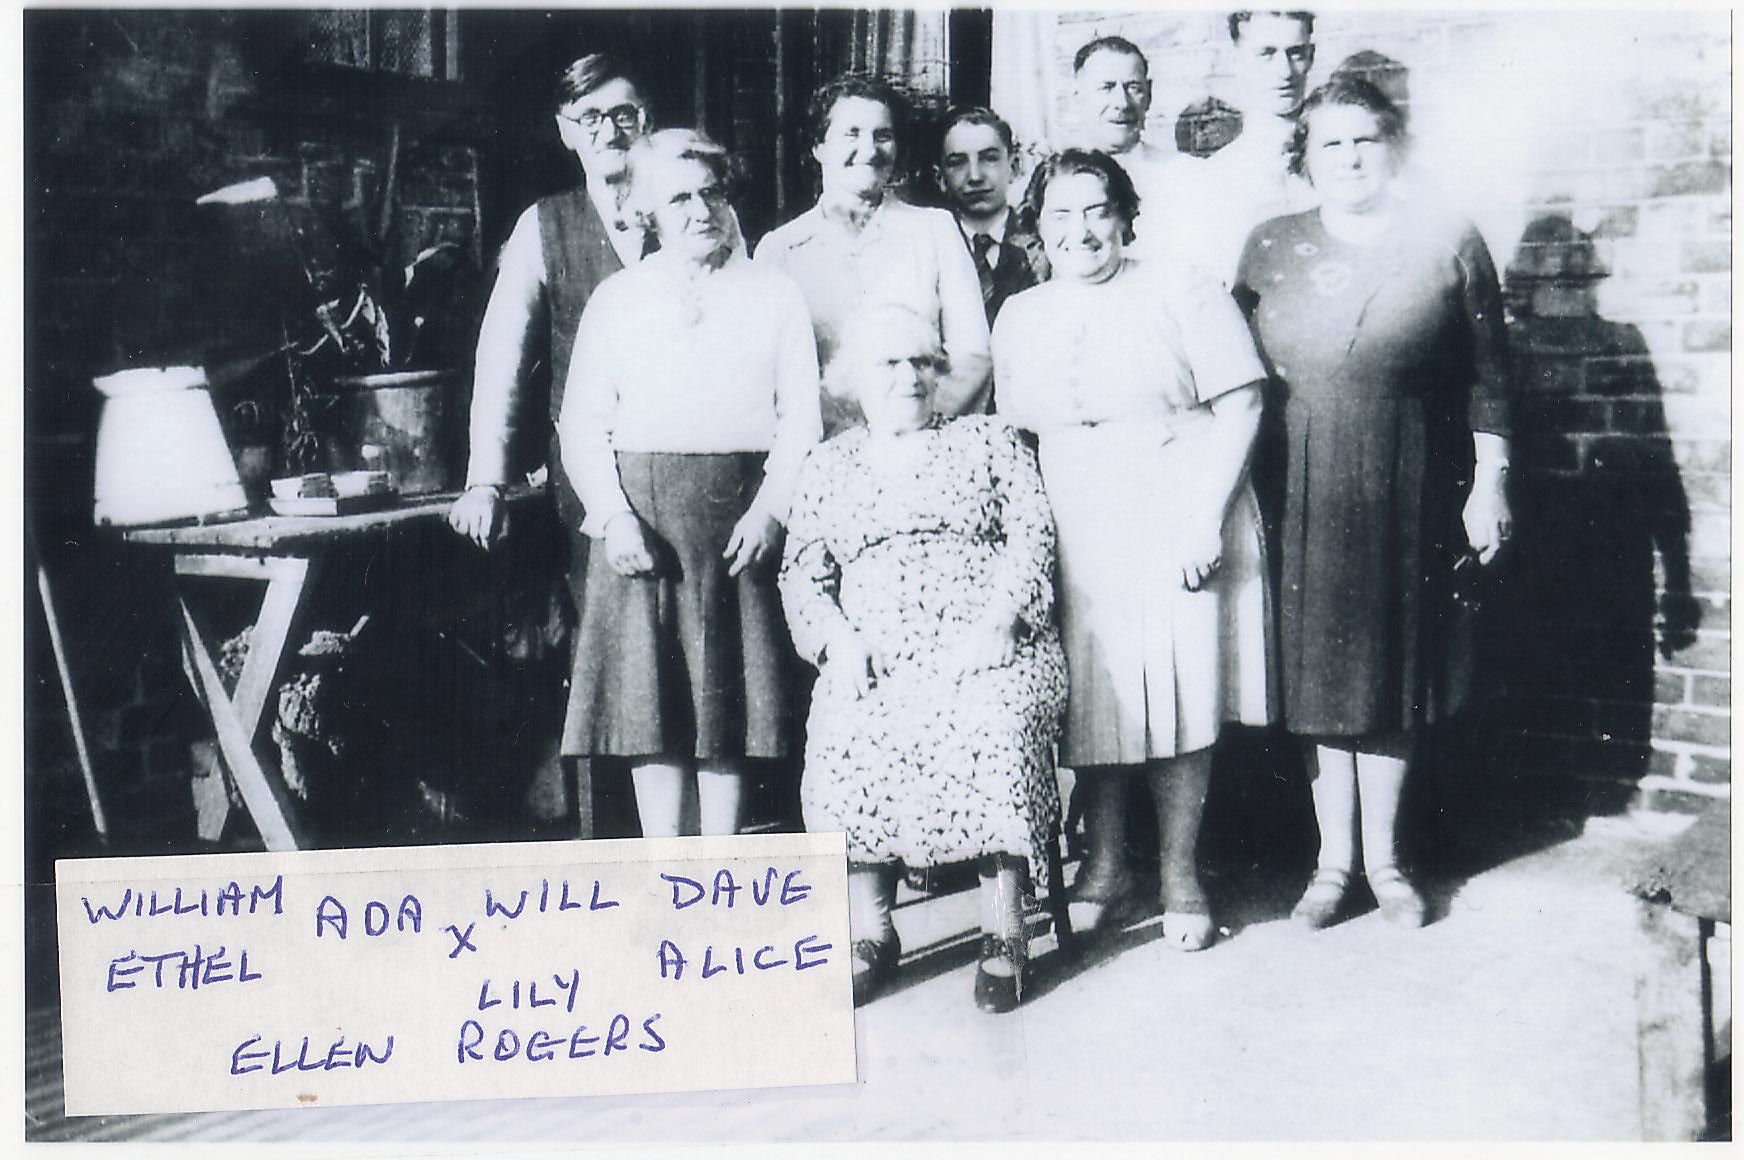 WILLIAM ADA x WILL DAVE
ETHEL LILY ALICE
ELLEN ROGERS